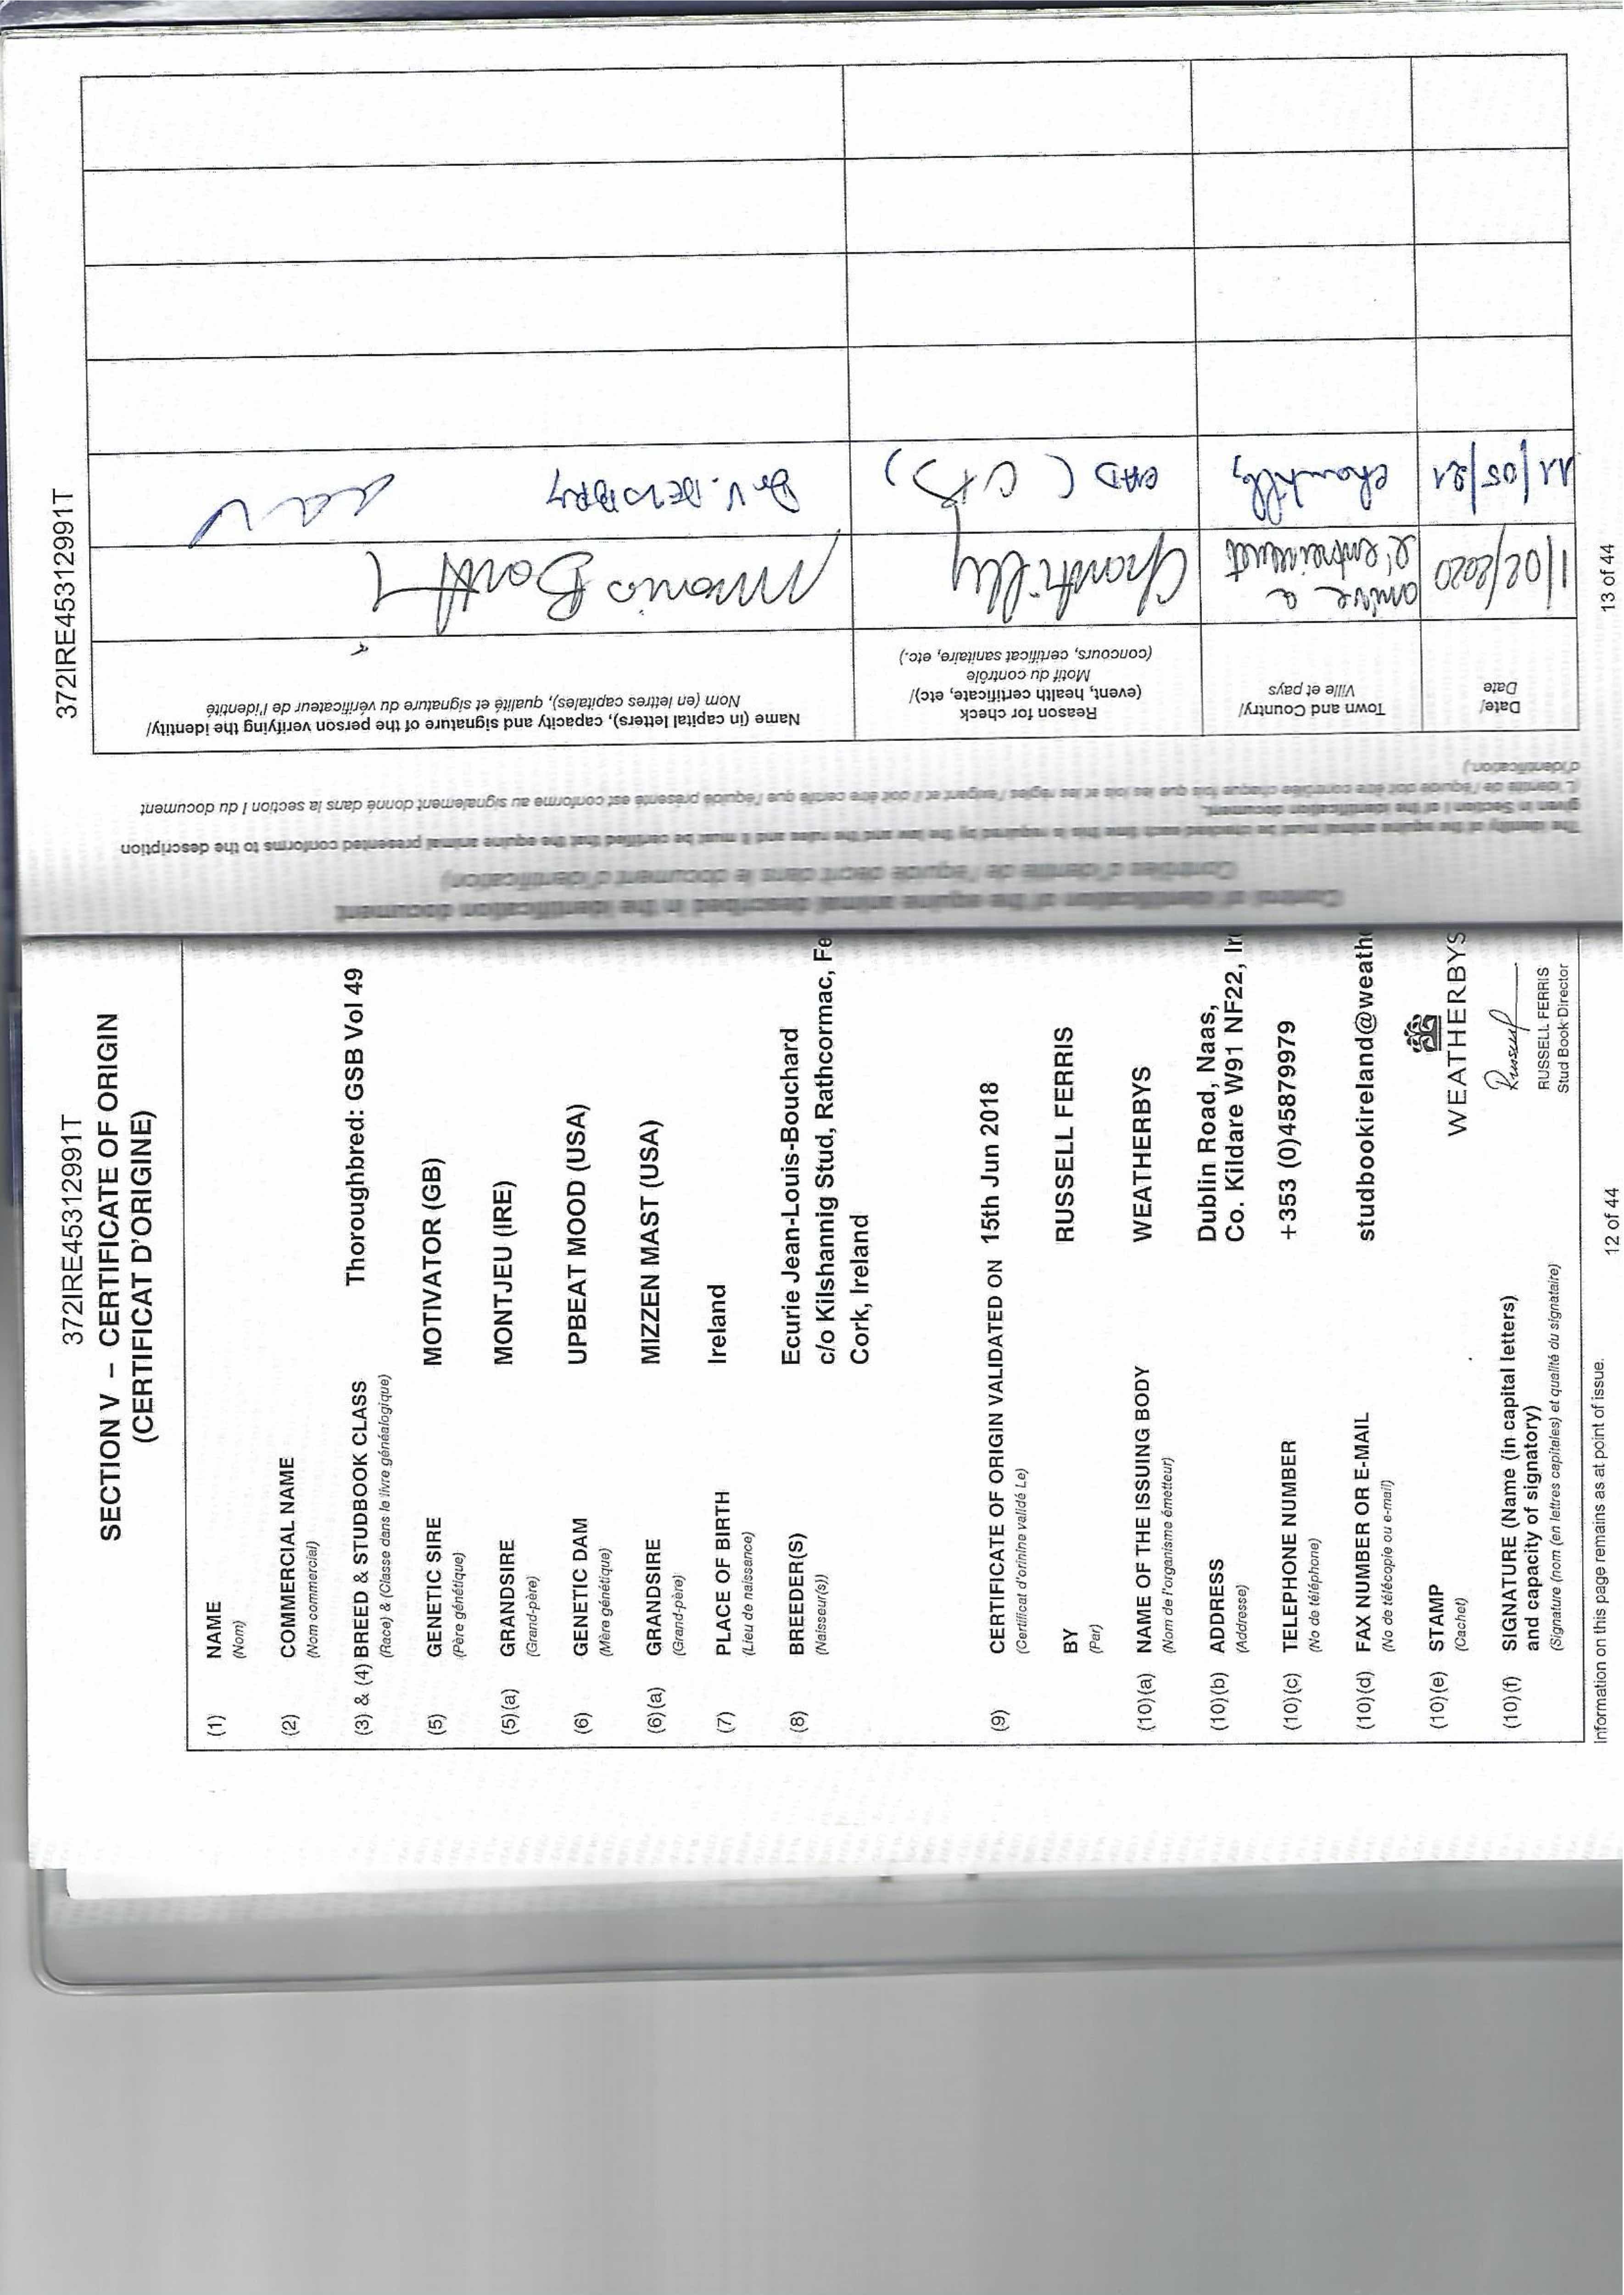 372IRE45312991T
SECTION V – CERTIFICATE OF ORIGIN
(CERTIFICAT D'ORIGINE)
(1) NAME
(Nom)
(2) COMMERCIAL NAME
(Nom commercial)
(3) & (4) BREED & STUDBOOK CLASS Thoroughbred: GSB Vol 49
(Race) & (Classe dans le livre généalogique)
(5) GENETIC SIRE MOTIVATOR (GB)
(Père génétique)
(5)(a) GRANDSIRE MONTJEU (IRE)
(Grand-père)
(6) GENETIC DAM UPBEAT MOOD (USA)
(Mère génétique)
(6)(a) GRANDSIRE MIZZEN MAST (USA)
(Grand-père)
(7) PLACE OF BIRTH Ireland
(Lieu de naissance)
(8) BREEDER(S) Ecurie Jean-Louis-Bouchard
(Naisseur(s)) c/o Kilshannig Stud, Rathcormac, Fe
Cork, Ireland
(9) CERTIFICATE OF ORIGIN VALIDATED ON 15th Jun 2018
(Certificat d'orinine validé Le)
BY RUSSELL FERRIS
(Par)
(10)(a) NAME OF THE ISSUING BODY WEATHERBYS
(Nom de l'organisme émetteur)
(10)(b) ADDRESS Dublin Road, Naas,
(Addresse) Co. Kildare W91 NF22, Ire
(10)(c) TELEPHONE NUMBER +353 (0)45879979
(No de téléphone)
(10)(d) FAX NUMBER OR E-MAIL studbookireland@weathe
(No de télécopie ou e-mail)
(10)(e) STAMP WEATHERBYS
(Cachet)
(10)(f) SIGNATURE (Name (in capital letters)
and capacity of signatory)
(Signature (nom (en lettres capitales) et qualité du signataire)
RUSSELL FERRIS
Stud Book Director
Information on this page remains as at point of issue.
12 of 44
372IRE45312991T
Control of identification of the equine animal described in the identification document
Contrôles d'identité de l'équidé décrit dans le document d'identification)
The identity of the equine animal must be checked each time this is required by the law and the rules and it must be certified that the equine animal presented conforms to the description
given in Section I of the identification document.
L'identité de l'équidé doit être contrôlée chaque fois que les lois et les règles l'exigent et il doit être certifié que l'équidé présenté est conforme au signalement donné dans la section I du document
d'identification.)
Date/
Date
Town and Country/
Ville et pays
Reason for check
(event, health certificate, etc)/
Motif du contrôle
(concours, certificat sanitaire, etc.)
Name (in capital letters), capacity and signature of the person verifying the identity/
Nom (en lettres capitales), qualité et signature du vérificateur de l'identité
1/02/2020 arrivé a l'entrainement Chantilly
11/05/21 Chantilly CAD ( ) Dr V. DEJOBRY
13 of 44